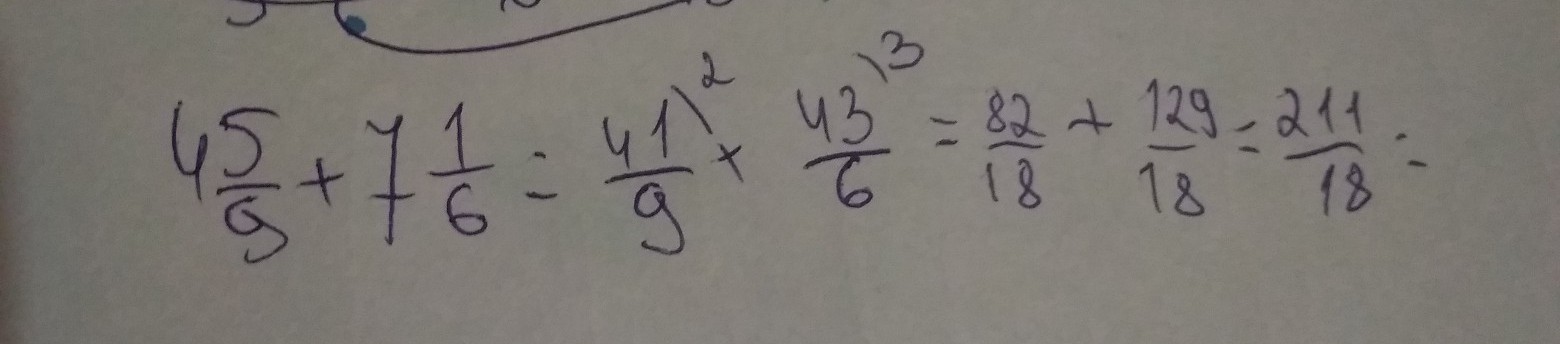 4 5/9 + 7 1/6 = 41/9 \2 + 43/6 \3 = 82/18 + 129/18 = 211/18 =